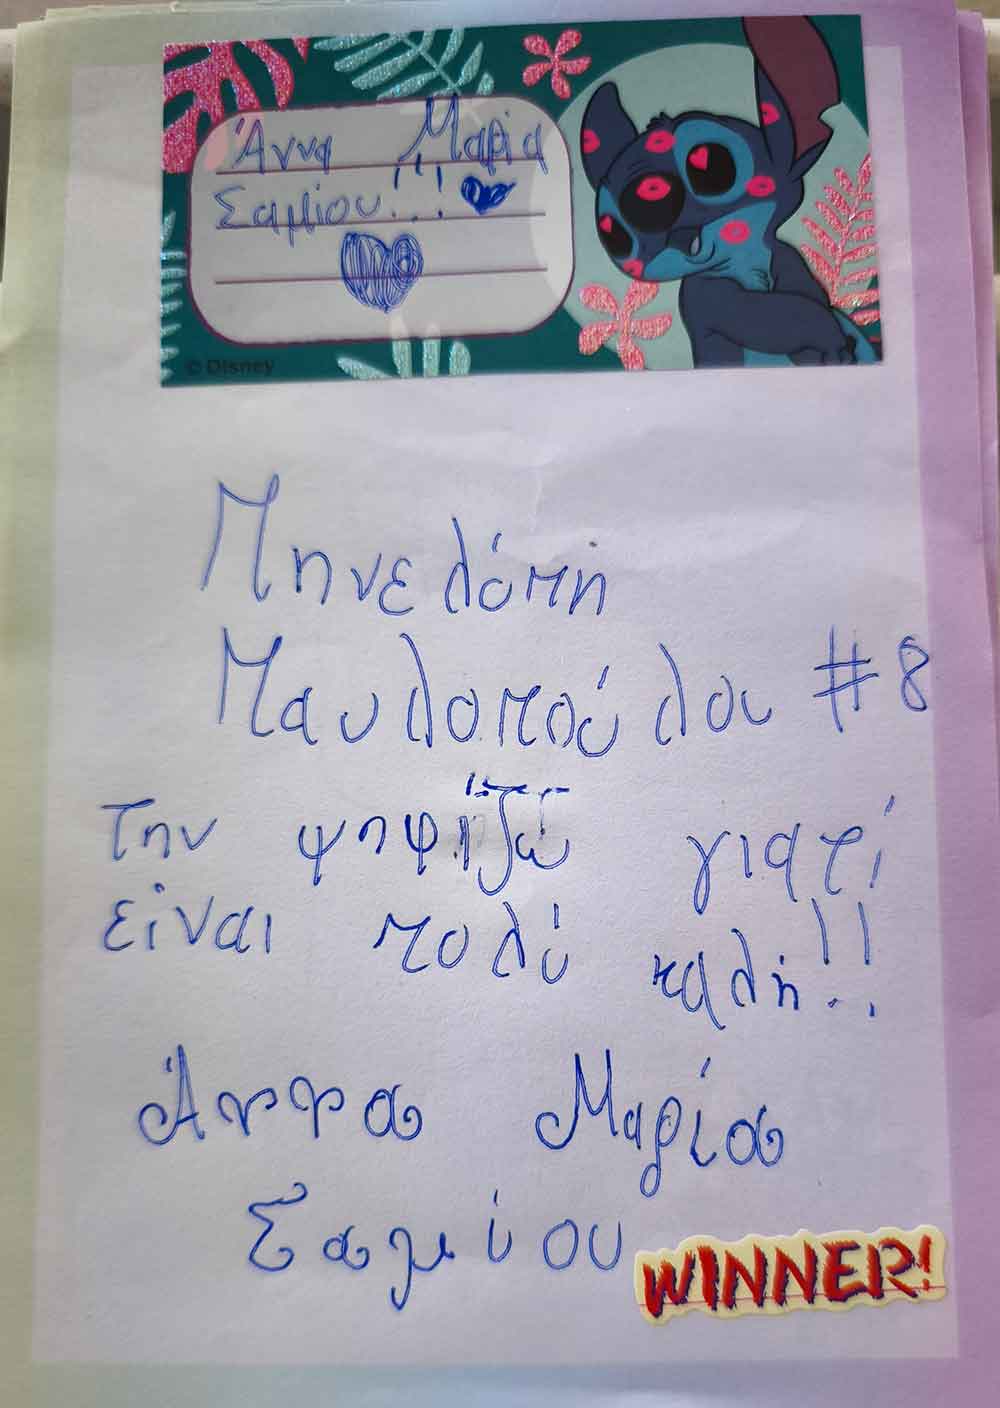 Άννα Μαρία
Σαμίου!!!
© Disney
Πηνελόπη
Παυλοπούλου #8
Την ψηφίζω γιατί
είναι πολύ καλή!!
Άννα Μαρία
Σαμίου
WINNER!